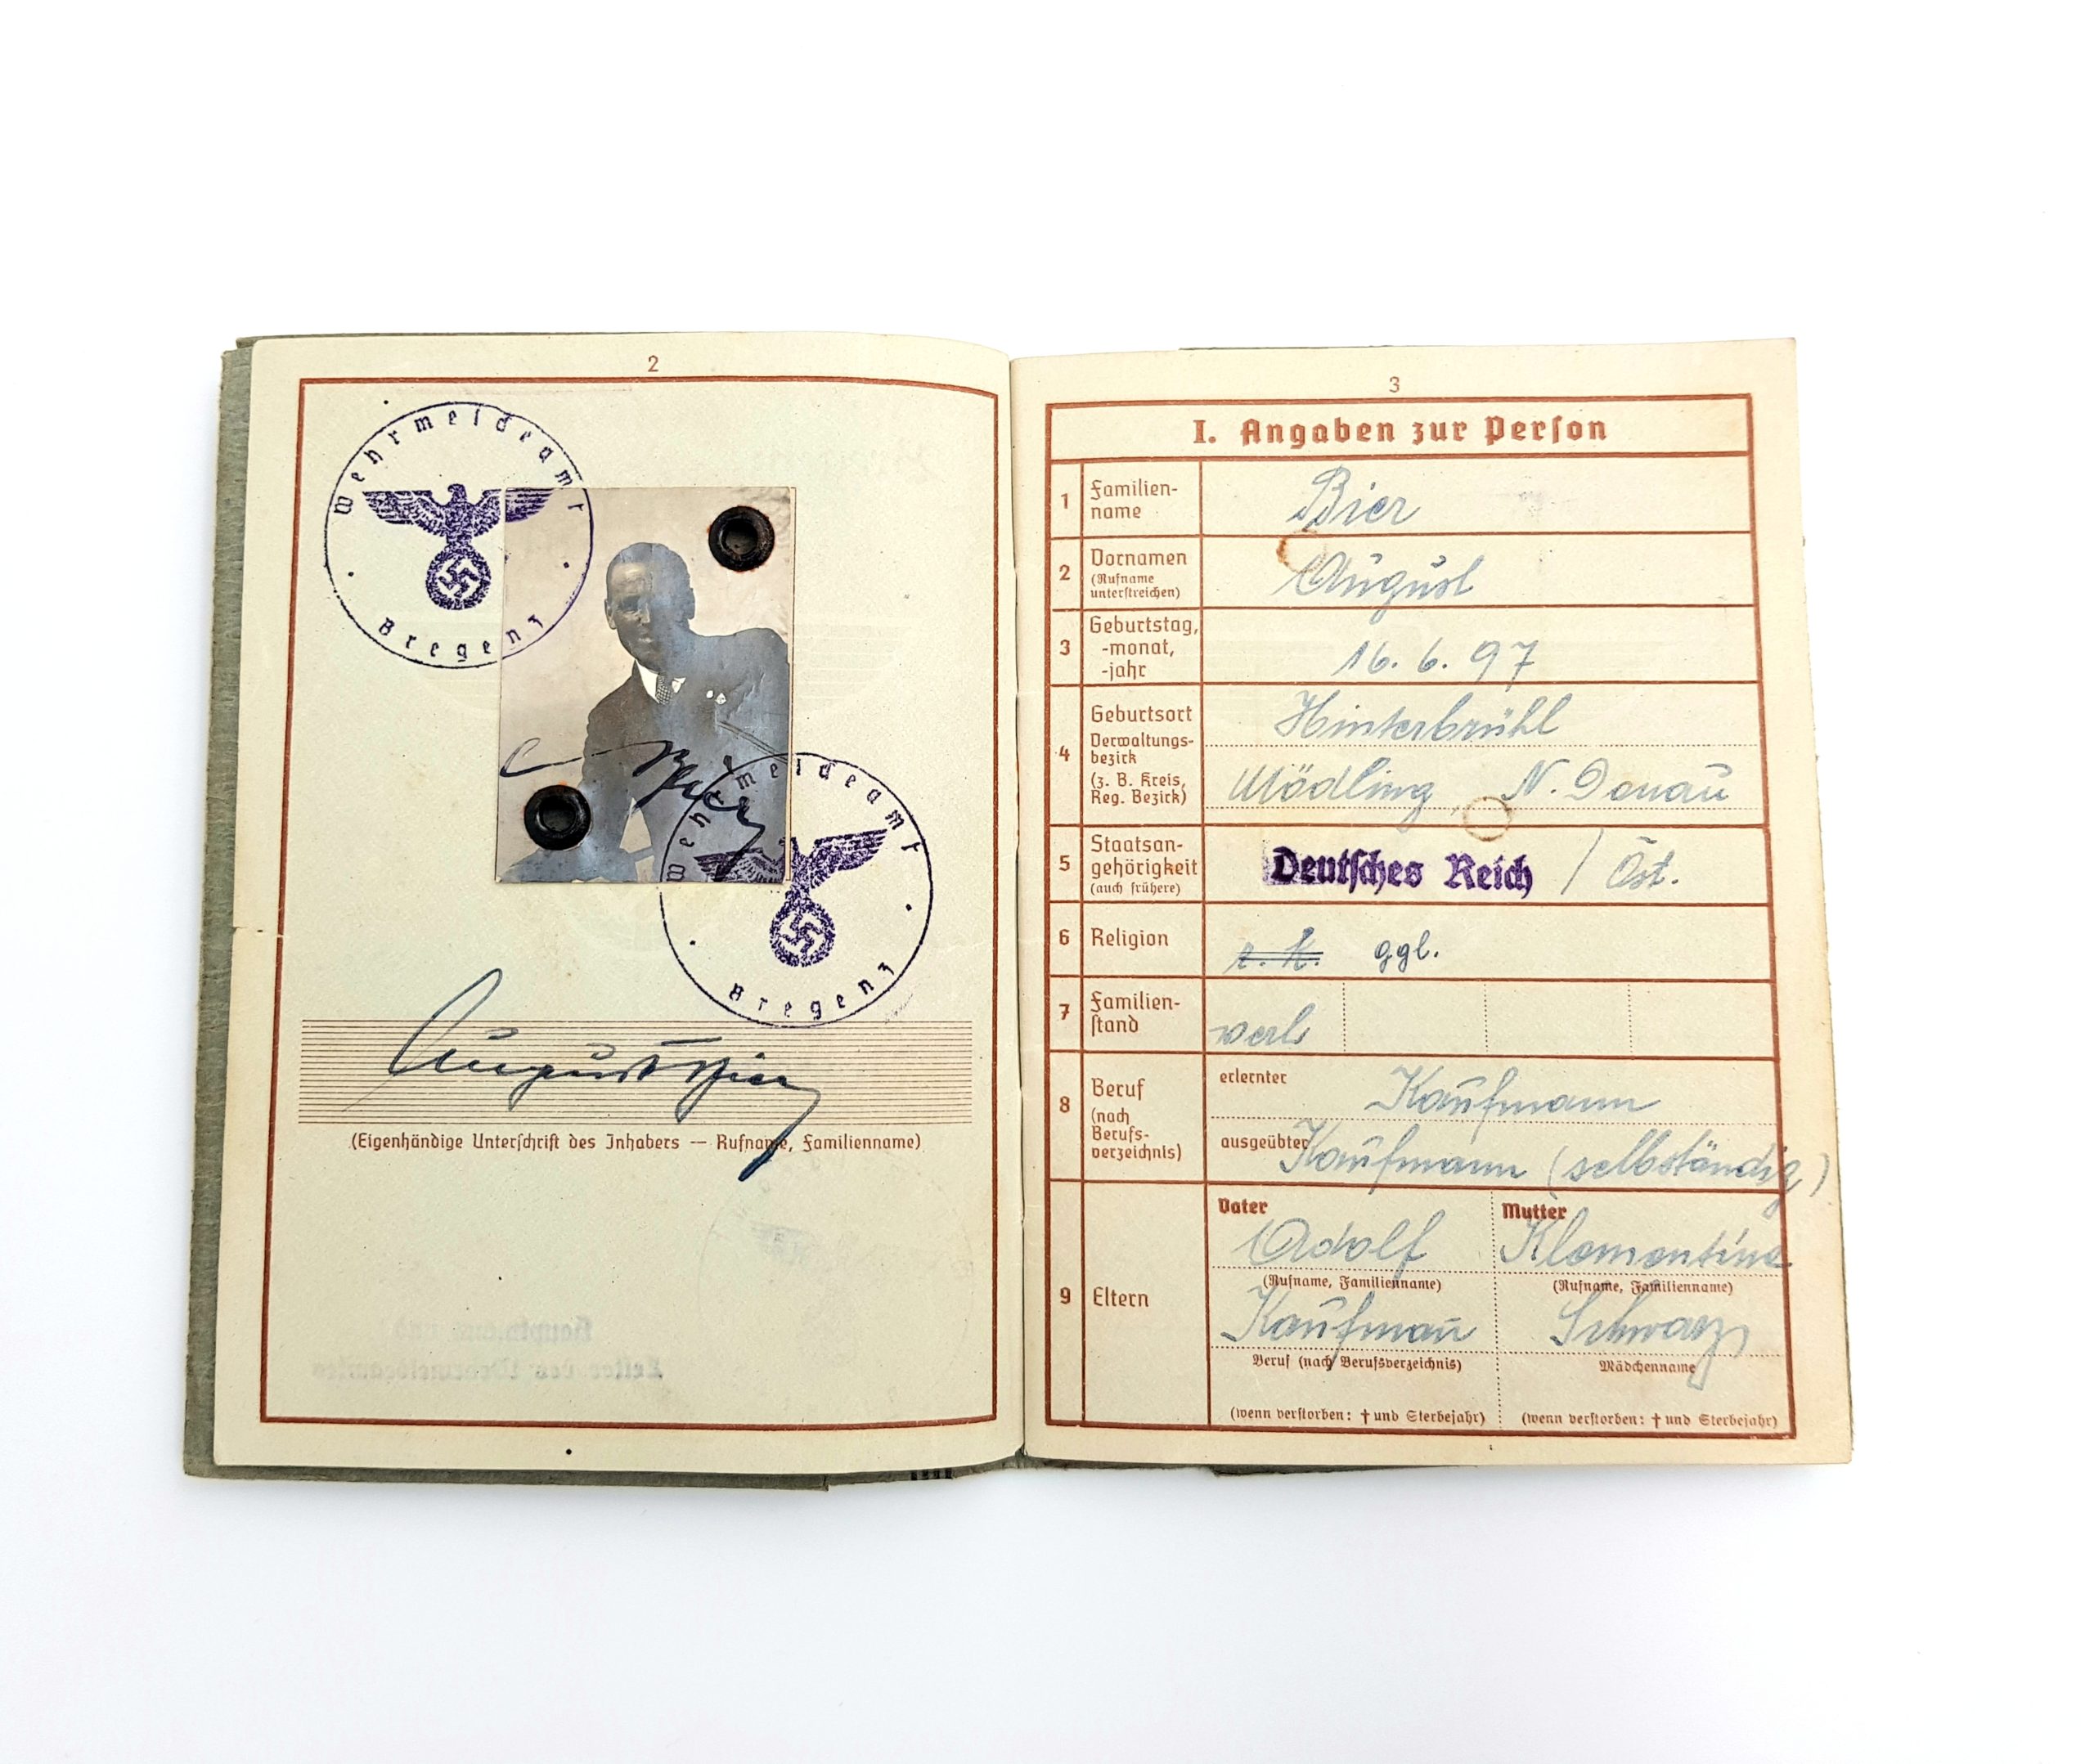 2
Wehrmeldeamt
Bregenz
Bier
Wehrmeldeamt
Bregenz
August Bier
(Eigenhändige Unterschrift des Inhabers — Rufname, Familienname)
3
I. Angaben zur Person
1 Familien-
name
Bier
2 Vornamen
(Rufname
unterstreichen)
August
3 Geburtstag,
-monat,
-jahr
16. 6. 97
4 Geburtsort
Verwaltungs-
bezirk
(z. B. Kreis,
Reg. Bezirk)
Hinterbrühl
Mödling, N. Donau
5 Staatsan-
gehörigkeit
(auch frühere)
Deutsches Reich / Öst.
6 Religion
r. k. ggl.
7 Familien-
stand
verh
8 Beruf
(nach
Berufs-
verzeichnis)
erlernter Kaufmann
ausgeübter Kaufmann (selbständig)
9 Eltern
Vater
Adolf
(Rufname, Familienname)
Kaufmann
Beruf (nach Berufsverzeichnis)
(wenn verstorben: † und Sterbejahr)
Mutter
Klementine
(Rufname, Familienname)
Schwarz
Mädchenname
(wenn verstorben: † und Sterbejahr)